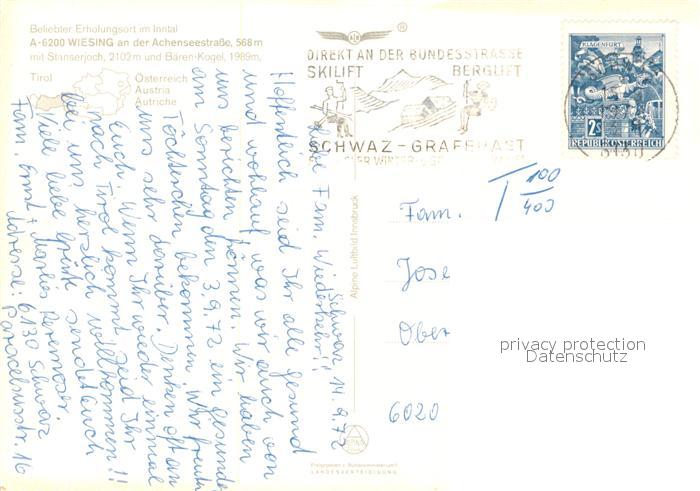 Beliebter Erholungsort im Inntal
A-6200 WIESING an der Achenseestraße, 568m
mit Stanserjoch, 2102m und Bären-Kogel, 1989m,
Tirol
Österreich
Austria
Autriche
DIREKT AN DER BUNDESSTRASSE
SKILIFT BERGLIFT
SCHWAZ - GRAFENAST
KLAGENFURT
2S
REPUBLIK ÖSTERREICH
6130
T 100
400
Schwaz, 14.9.72
Liebe Fam. Wiederkehr!!
Hoffentlich seid Ihr alle gesund
und wohlauf was wir auch von
uns berichten können. Wir haben
am Sonntag den 3.9.72 ein gesundes
Töchterchen bekommen. Wir freuen
uns sehr darüber. Denken oft an
Euch. Wenn Ihr wieder einmal
nach Tirol kommt seid Ihr
bei uns herzlich willkommen!!
Viele liebe Grüße sendet Euch
Fam. Ernst + Marlies
Adresse: 6130 Schwaz
Paracelsusstr. 16
Alpine Luftbild Innsbruck
Fam.
Jose
Ober
6020
privacy protection
Datenschutz
ALPINE
Freigegeben v. Bundesministerium f.
LANDESVERTEIDIGUNG